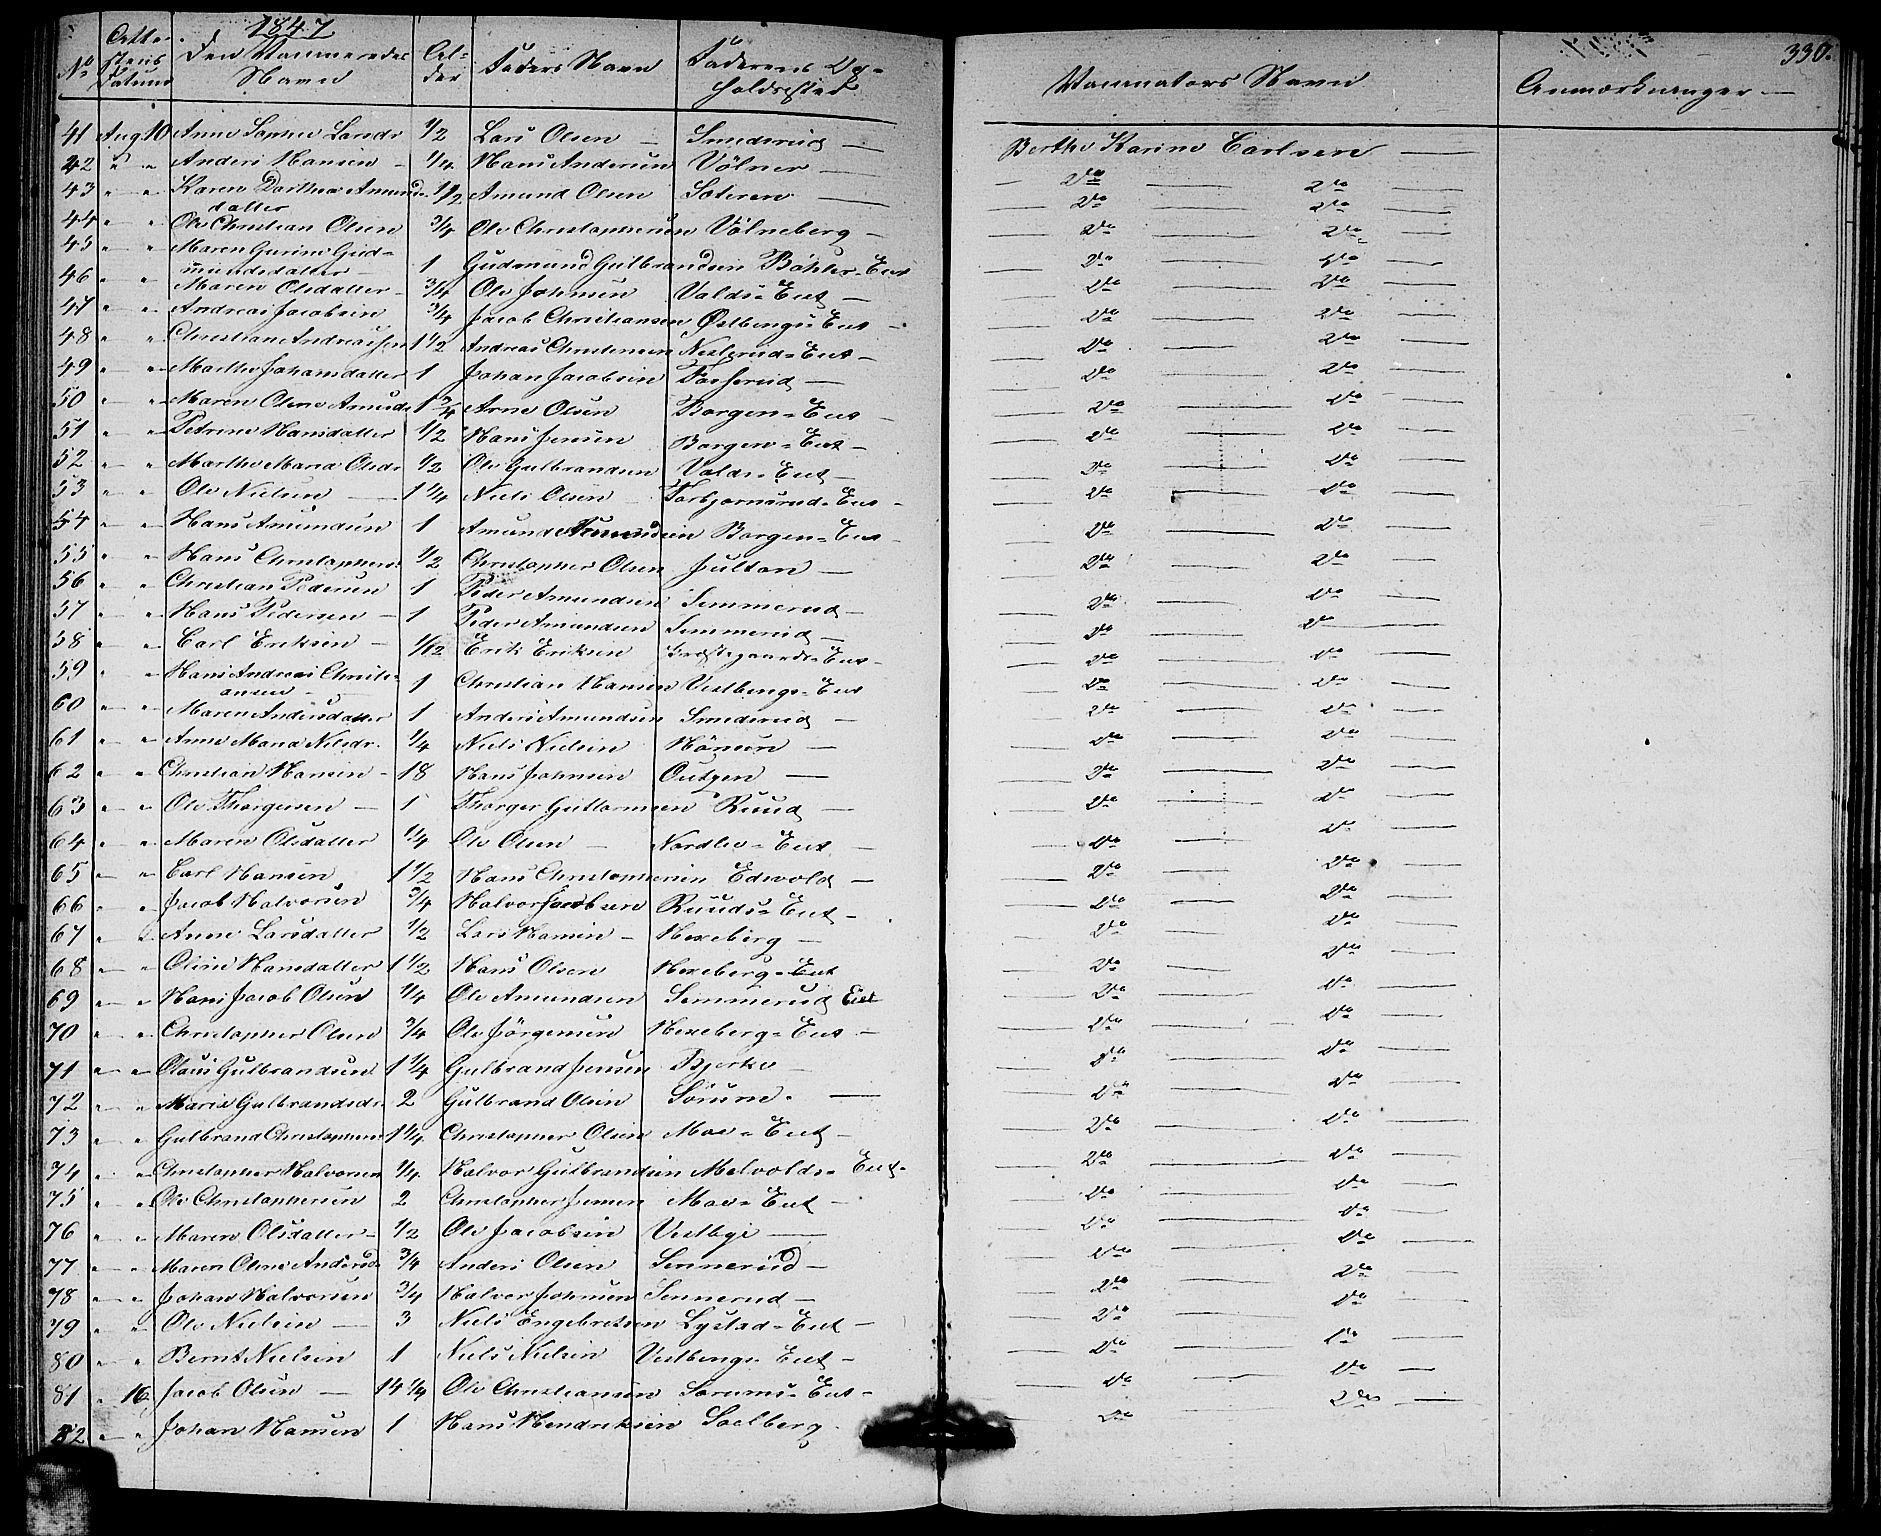 1847
330.
No Attestens Datum Den Vaccineredes Navn Alder Faders Navn Faderens Opholdssted Vaccinators Navn Anmærkninger
41 Aug 10 Anne Sophie Larsdr 1/2 Lars Olsen — Smedsrud — Berthe Karine Carlsen —
42 " " Anders Hansen - 1/4 Hans Andersen Völner — Do — Do —
43 " " Karen Dorthea Amunds 1/2 Amund Olsen Sæteren — Do — Do —
datter
44 " " Ole Christian Olsen 3/4 Ole Christophersen Völneberg — Do — Do —
45 " " Maren Gurine Gud=
mundsdatter — 1 Gudmund Gulbrandsen Böhler=Eiet Do — Do —
46 " " Maren Olsdatter 3/4 Ole Johnsen Valds=Eiet — Do — Do —
47 " " Andreas Jacobsen 3/4 Jacob Christiansen Østbengs Eiet — Do — Do —
48 " " Christian Andreasen 1 1/2 Andreas Christensen Nesterud=Eiet — Do — Do —
49 " " Marthe Johansdatter 1 Johan Jacobsen Fosserud — Do — Do —
50 " " Maren Oline Arnesdr 1 3/4 Arne Olsen Borgen=Eiet — Do — Do —
51 " " Petrine Hansdatter 1/2 Hans Jensen Borgen=Eiet — Do — Do —
52 " " Marthe Maria Olsdr 1/2 Ole Gulbrandsen Valds=Eiet — Do — Do —
53 " " Ole Nielsen — 1 1/4 Niels Olsen — Torbjørnsrud=Eiet — Do — Do —
54 " " Hans Amundsen 1 Amund Amundsen Borgen=Eiet — Do — Do —
55 " " Hans Christophers. 1/2 Christopher Olsen Julton — Do — Do —
56 " " Christian Pedersen 1 Peder Amundsen Simmerud — Do — Do —
57 " " Hans Pedersen — 1 Peder Amundsen Simmerud — Do — Do —
58 " " Carl Eriksen — 1/12 Erik Eriksen Præstegaards=Eiet — Do — Do —
59 " " Hans Andreas Christi=
ansen — 1 Christian Hansen Vestbengs=Eiet Do — Do —
60 " " Maren Andersdatter 1 Anders Amundsen Smedsrud — Do — Do —
61 " " Anne Maria Nilsdr. 1/4 Niels Nielsen Hönsen — Do — Do —
62 " " Christian Hansen - 18 Hans Johnsen Outgen — Do — Do —
63 " " Ole Thorgersen — 1 Thorger Guttormsen Ruud — Do — Do —
64 " " Maren Olsdatter 1/4 Ole Olsen — Nordlie=Eiet — Do — Do —
65 " " Carl Hansen 1 1/2 Hans Christophersen Edsvold — Do — Do —
66 " " Jacob Halvorsen 3/4 Halvor Jacobsen Ruuds=Eiet — Do — Do —
67 " " Anne Larsdatter 1/2 Lars Hansen — Hexeberg — Do — Do —
68 " " Oline Hansdatter 1 1/2 Hans Olsen Hexeberg=Eiet Do — Do —
69 " " Hans Jacob Olsen 1/4 Ole Amundsen Simmerud Eiet Do — Do —
70 " " Christopher Olsen 3/4 Ole Jörgensen Hexeberg=Eiet — Do — Do —
71 " " Olaus Gulbrandsen 1 1/4 Gulbrand Jensen Bjerke — Do — Do —
72 " " Maria Gulbrandsdr. 2 Gulbrand Olsen Sörum. — Do — Do —
73 " " Gulbrand Christophers. 1 1/4 Christopher Olsen Moe=Eiet — Do — Do —
74 " " Christopher Halvorsen 1/4 Halvor Gulbrandsen Melvolds=Eiet— Do — Do —
75 " " Ole Christophersen 2 Christopher Jensen Moe=Eiet — Do — Do —
76 " " Maren Olsdatter — 1/2 Ole Jacobsen Vestbye — Do — Do —
77 " " Maren Oline Andersd. 3/4 Anders Olsen Simmerud — Do — Do —
78 " " Johan Halvorsen 3/4 Halvor Johnsen Simmerud — Do — Do —
79 " " Ole Nielsen — 3 Niels Engebretsen Lystad=Eiet — Do — Do —
80 " " Bernt Nielsen 1 Niels Nielsen Vestbengs Eiet — Do — Do —
81 " 16 Jacob Olsen — 14 1/4 Ole Christiansen Sørums=Eiet — Do — Do —
82 " " Johan Hansen 1 Hans Hendriksen Soelberg Do — Do —